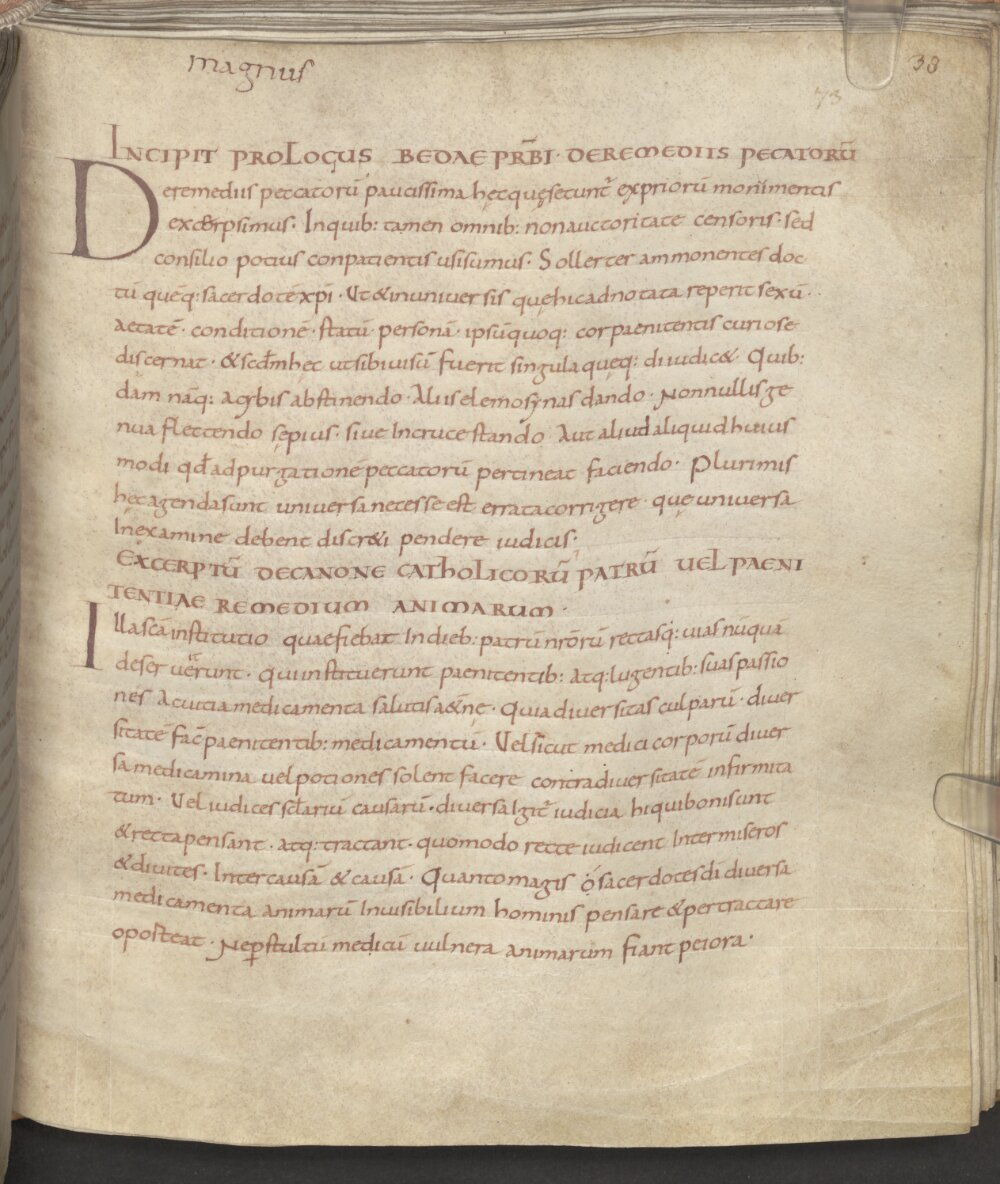 magnus
38
73
INCIPIT PROLOGUS BEDAE PRB̄I · DEREMEDIIS PECATORŪ
Deremediis peccatorū paucissima hęc quęsecunt̄ expriorū monimentis
excerpsimus · Inquib: tamen omnib: nonauctoritate censoris · sed
consilio potius conpatientis usisumus · Sollerter ammonentes doc
tū quēq: sacerdotē xp̄i · Ut&inuniversis quęhicadnotata reperit sexū ·
aetatē · conditionē · statū personā · ipsūquoq: cor paenitentis curiose
discernat · &scđmhec utsibivisū fuerit singula queq: diiudic& · Quib:
dam nāq: acybis abstinendo · Aliis elemosynas dando · Nonnullis ge
nua flectendo sępius · sive Incruce stando · Aut aliud aliquid huius
modi qđadpurgationē peccatorū pertineat faciendo · Plurimis
hęc agendasunt universa necesse est errata corrigere · quę universa
Inexamine debent discr&i pendere iudicis ·
EXCERPTŪ DECANONE CATHOLICORŪ PATRŪ UEL PAENI
TENTIAE REMEDIUM ANIMARUM ·
Illa scā institutio quaefiebat Indieb: patrū nrōrū rectasq: uias nūquā
deseruerunt · quiinstituerunt paenitentib: atq: lugentib: suas passio
nes Acuitia medicamenta salutis a&ne · Quia diversitas culparū · diver
sitatē fac̄ paenitentib: medicamentū · Uelsicut medici corporū diver
sa medicamina uel potiones solent facere contra diversitatē infirmita
tum · Uel iudices sclariū causarū · diversa Igit̄ iudicia hi quibonisunt
&recta pensant · atq: tractant · quomodo recte iudicent Inter miseros
&divites · Inter causā & causā · Quantomagis ġ sacerdotes dī diversa
medicamenta animarū Invisibilium hominis pensare &pertractare
oporteat · Nep̱stultū medicū vulnera animarum fiant peiora ·